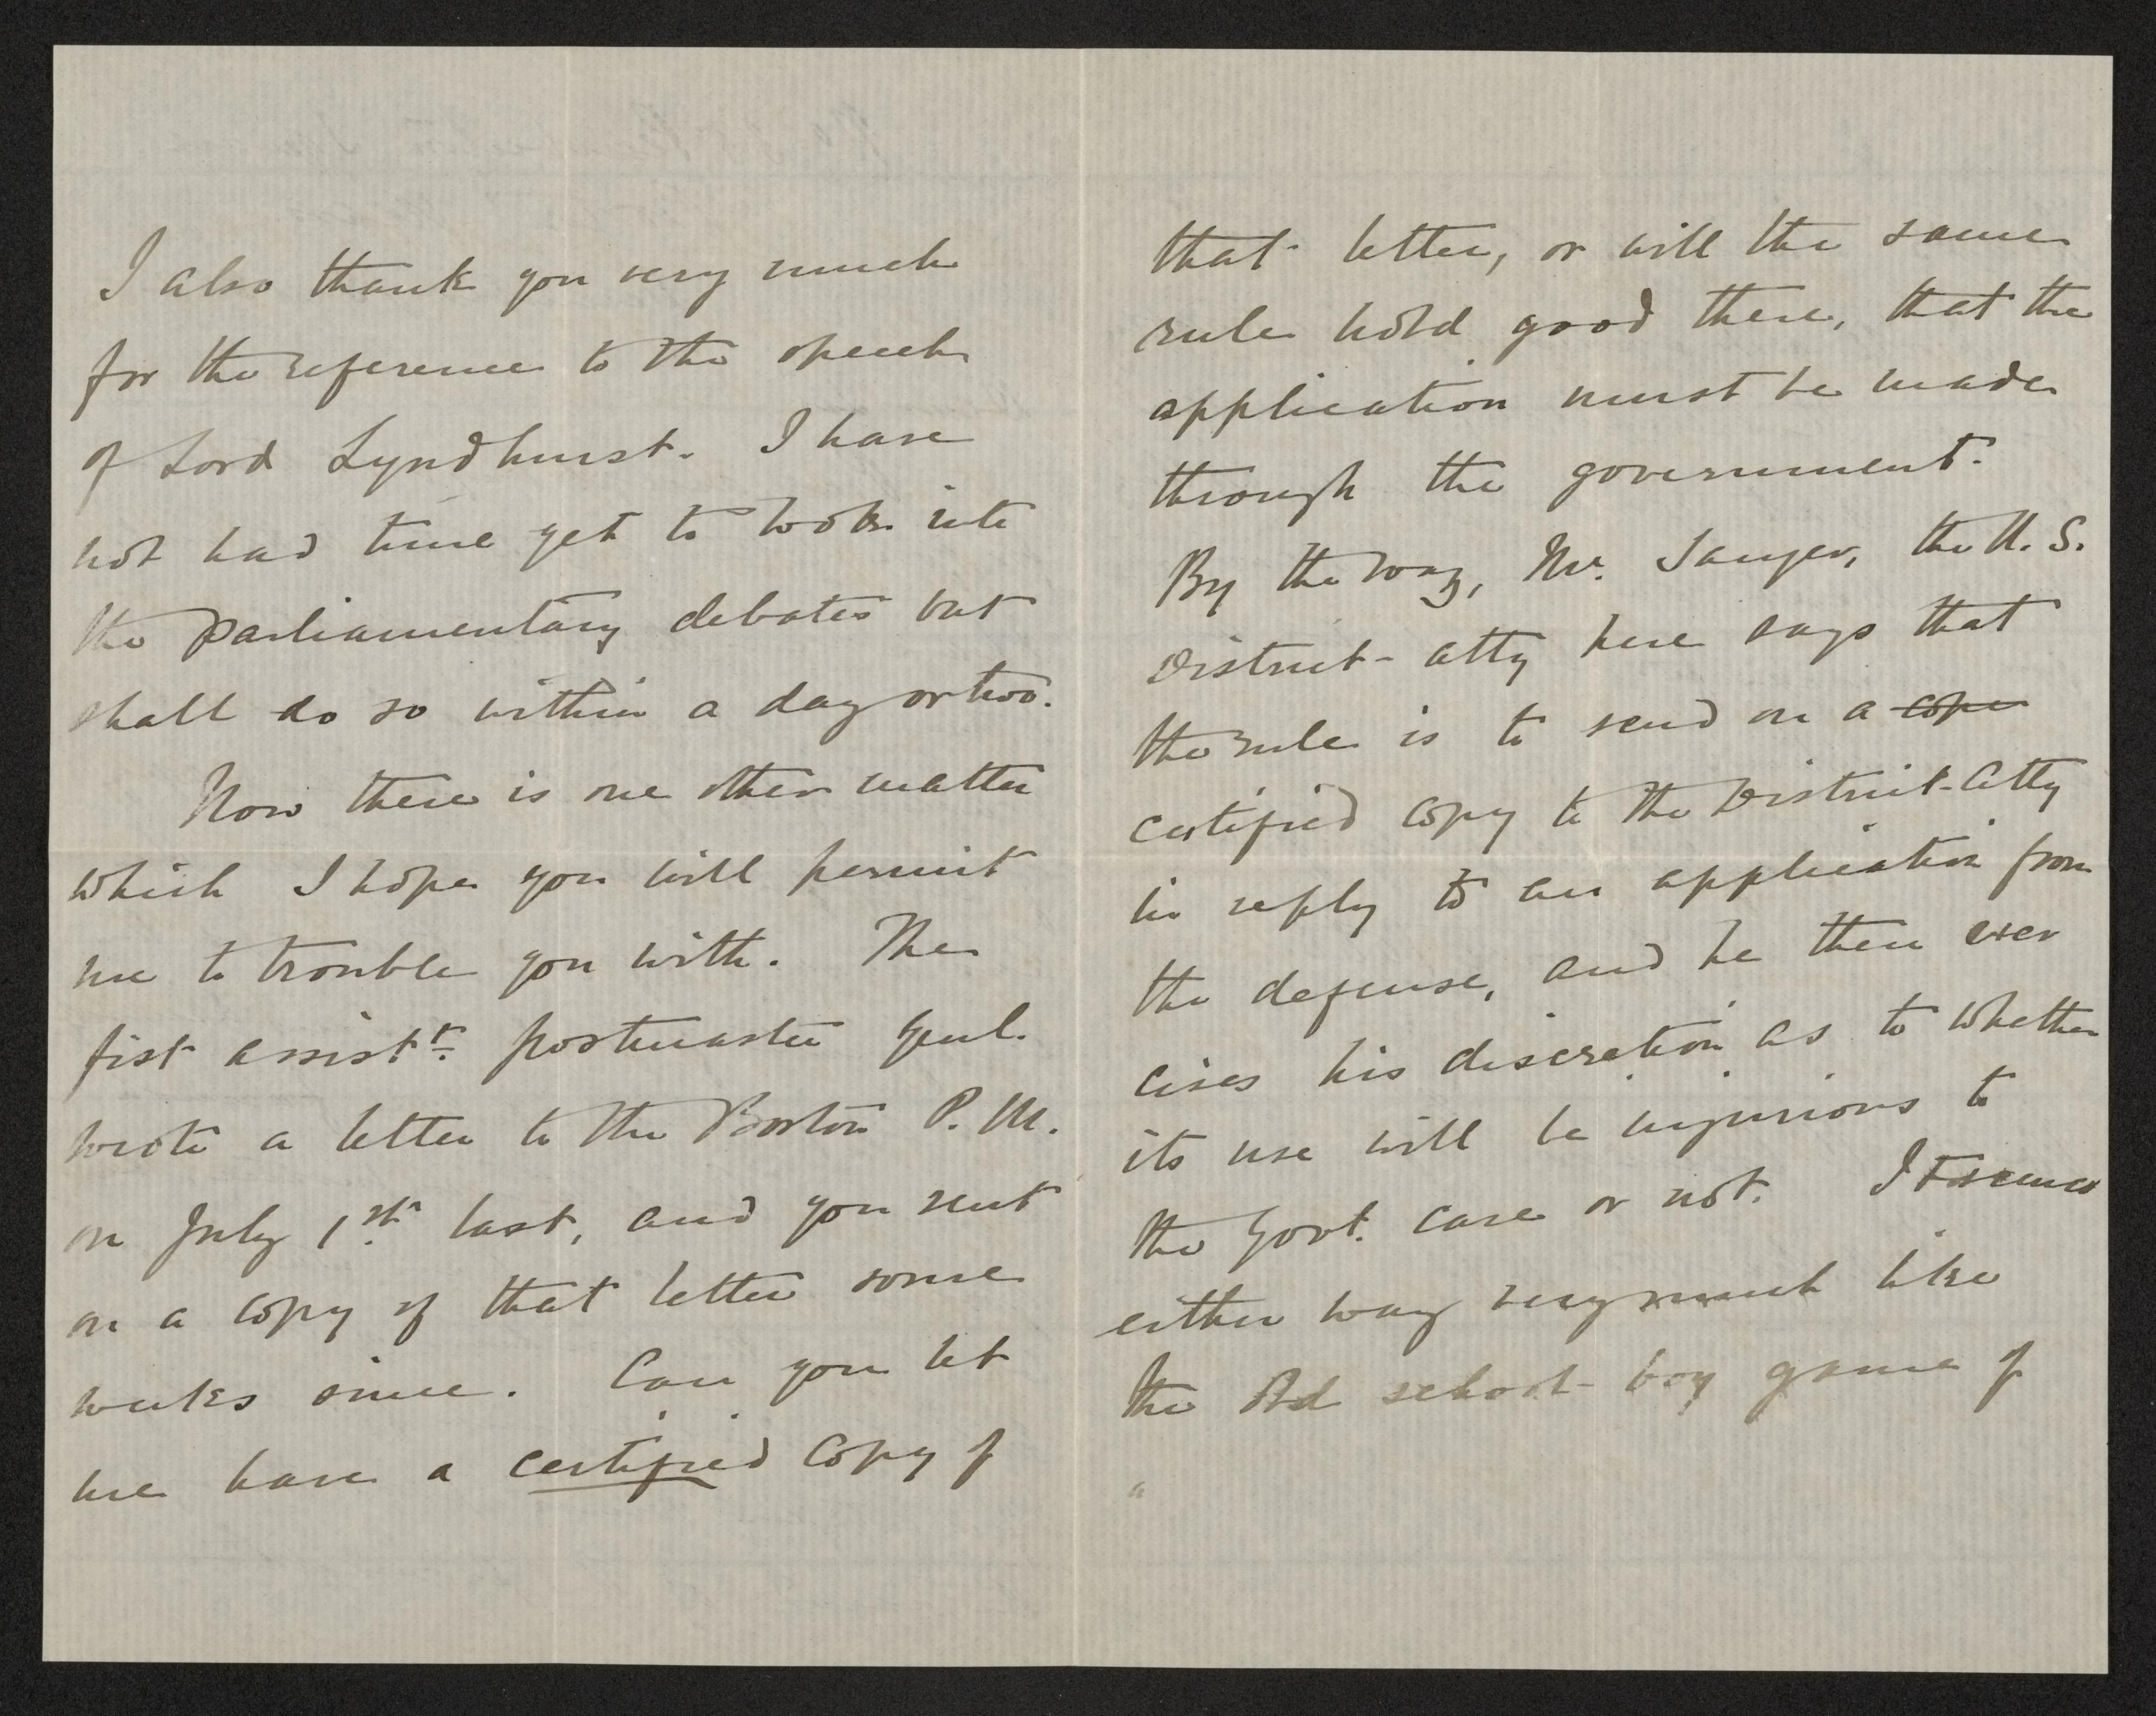 I also thank you very much
for the reference to the speech
of Lord Lyndhurst. I have
not had time yet to look into
the parliamentary debates but
shall do so within a day or two.
Now there is one other matter
which I hope you will permit
me to trouble you with. The
fist assist<sup>t</sup>. postmaster genl.
wrote a letter to the Boston P.M.
on July 1<sup>st</sup> last, and you sent
on a copy of that letter some
weeks since. Can you let
me have a certified copy of
that letter, or will the same
rule hold good there, that the
application must be made
through the government.
By the way, Mr. Sanger, the U.S.
District-atty here says that
the rule is to send on a cop
certified copy to the District-Atty
in reply to an application from
the defense, and he then exer
cises his discretion as to whether
its use will be injurious to
the Govt. case or not. It seems
either way very much like
the old school-boy game of
a